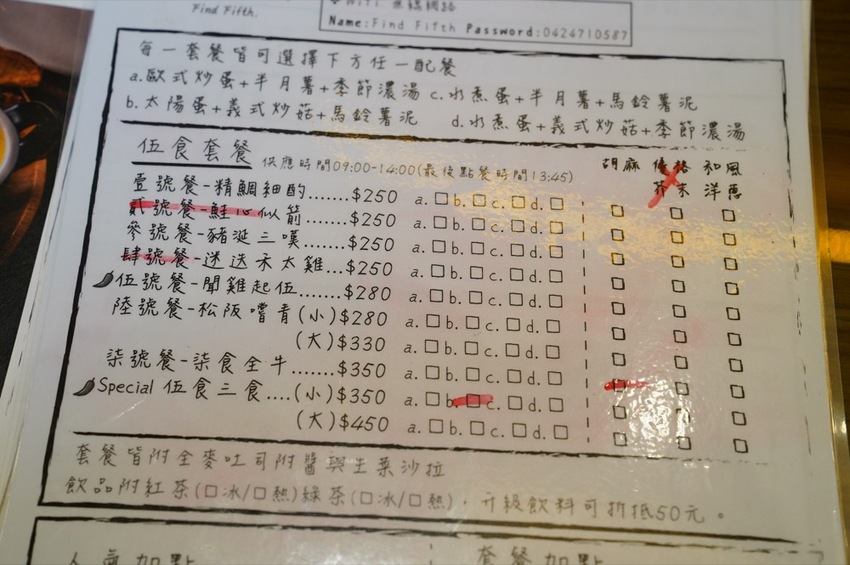 Find Fifth.
Wifi 無線網路
Name:Find Fifth Password:0424710587
每一套餐皆可選擇下方任一配餐
a.歐式炒蛋+半月薯+季節濃湯 c.水煮蛋+半月薯+馬鈴薯泥
b.太陽蛋+義式炒菇+馬鈴薯泥 d.水煮蛋+義式炒菇+季節濃湯
伍食套餐 供應時間09:00-14:00(最後點餐時間13:45)
胡麻 優格芥末 和風洋蔥
壹號餐-精鯛細酌......$250 a.□b.□c.□d.□
貳號餐-鮭心似箭......$250 a.□b.□c.□d.□ □ □ □
參號餐-豬涎三嘆.......$250 a.□b.□c.□d.□ □ □ □
肆號餐-迷迭禾太雞...$250 a.□b.□c.□d.□ □ □ □
伍號餐-聞雞起伍.......$280 a.□b.□c.□d.□ □ □ □
陸號餐-松阪嚐青(小)$280 a.□b.□c.□d.□ □ □ □
(大)$330 a.□b.□c.□d.□ □ □ □
柒號餐-柒食全牛.......$350 a.□b.□c.□d.□ □ □ □
Special 伍食三食....(小)$350 a.□b.□c.□d.□ □ □ □
(大)$450 a.□b.□c.□d.□ □ □ □
套餐皆附全麥吐司附醬與生菜沙拉
飲品附紅茶(□冰/□熱)綠茶(□冰/□熱)，升級飲料可折抵50元。
人氣加點
套餐加點